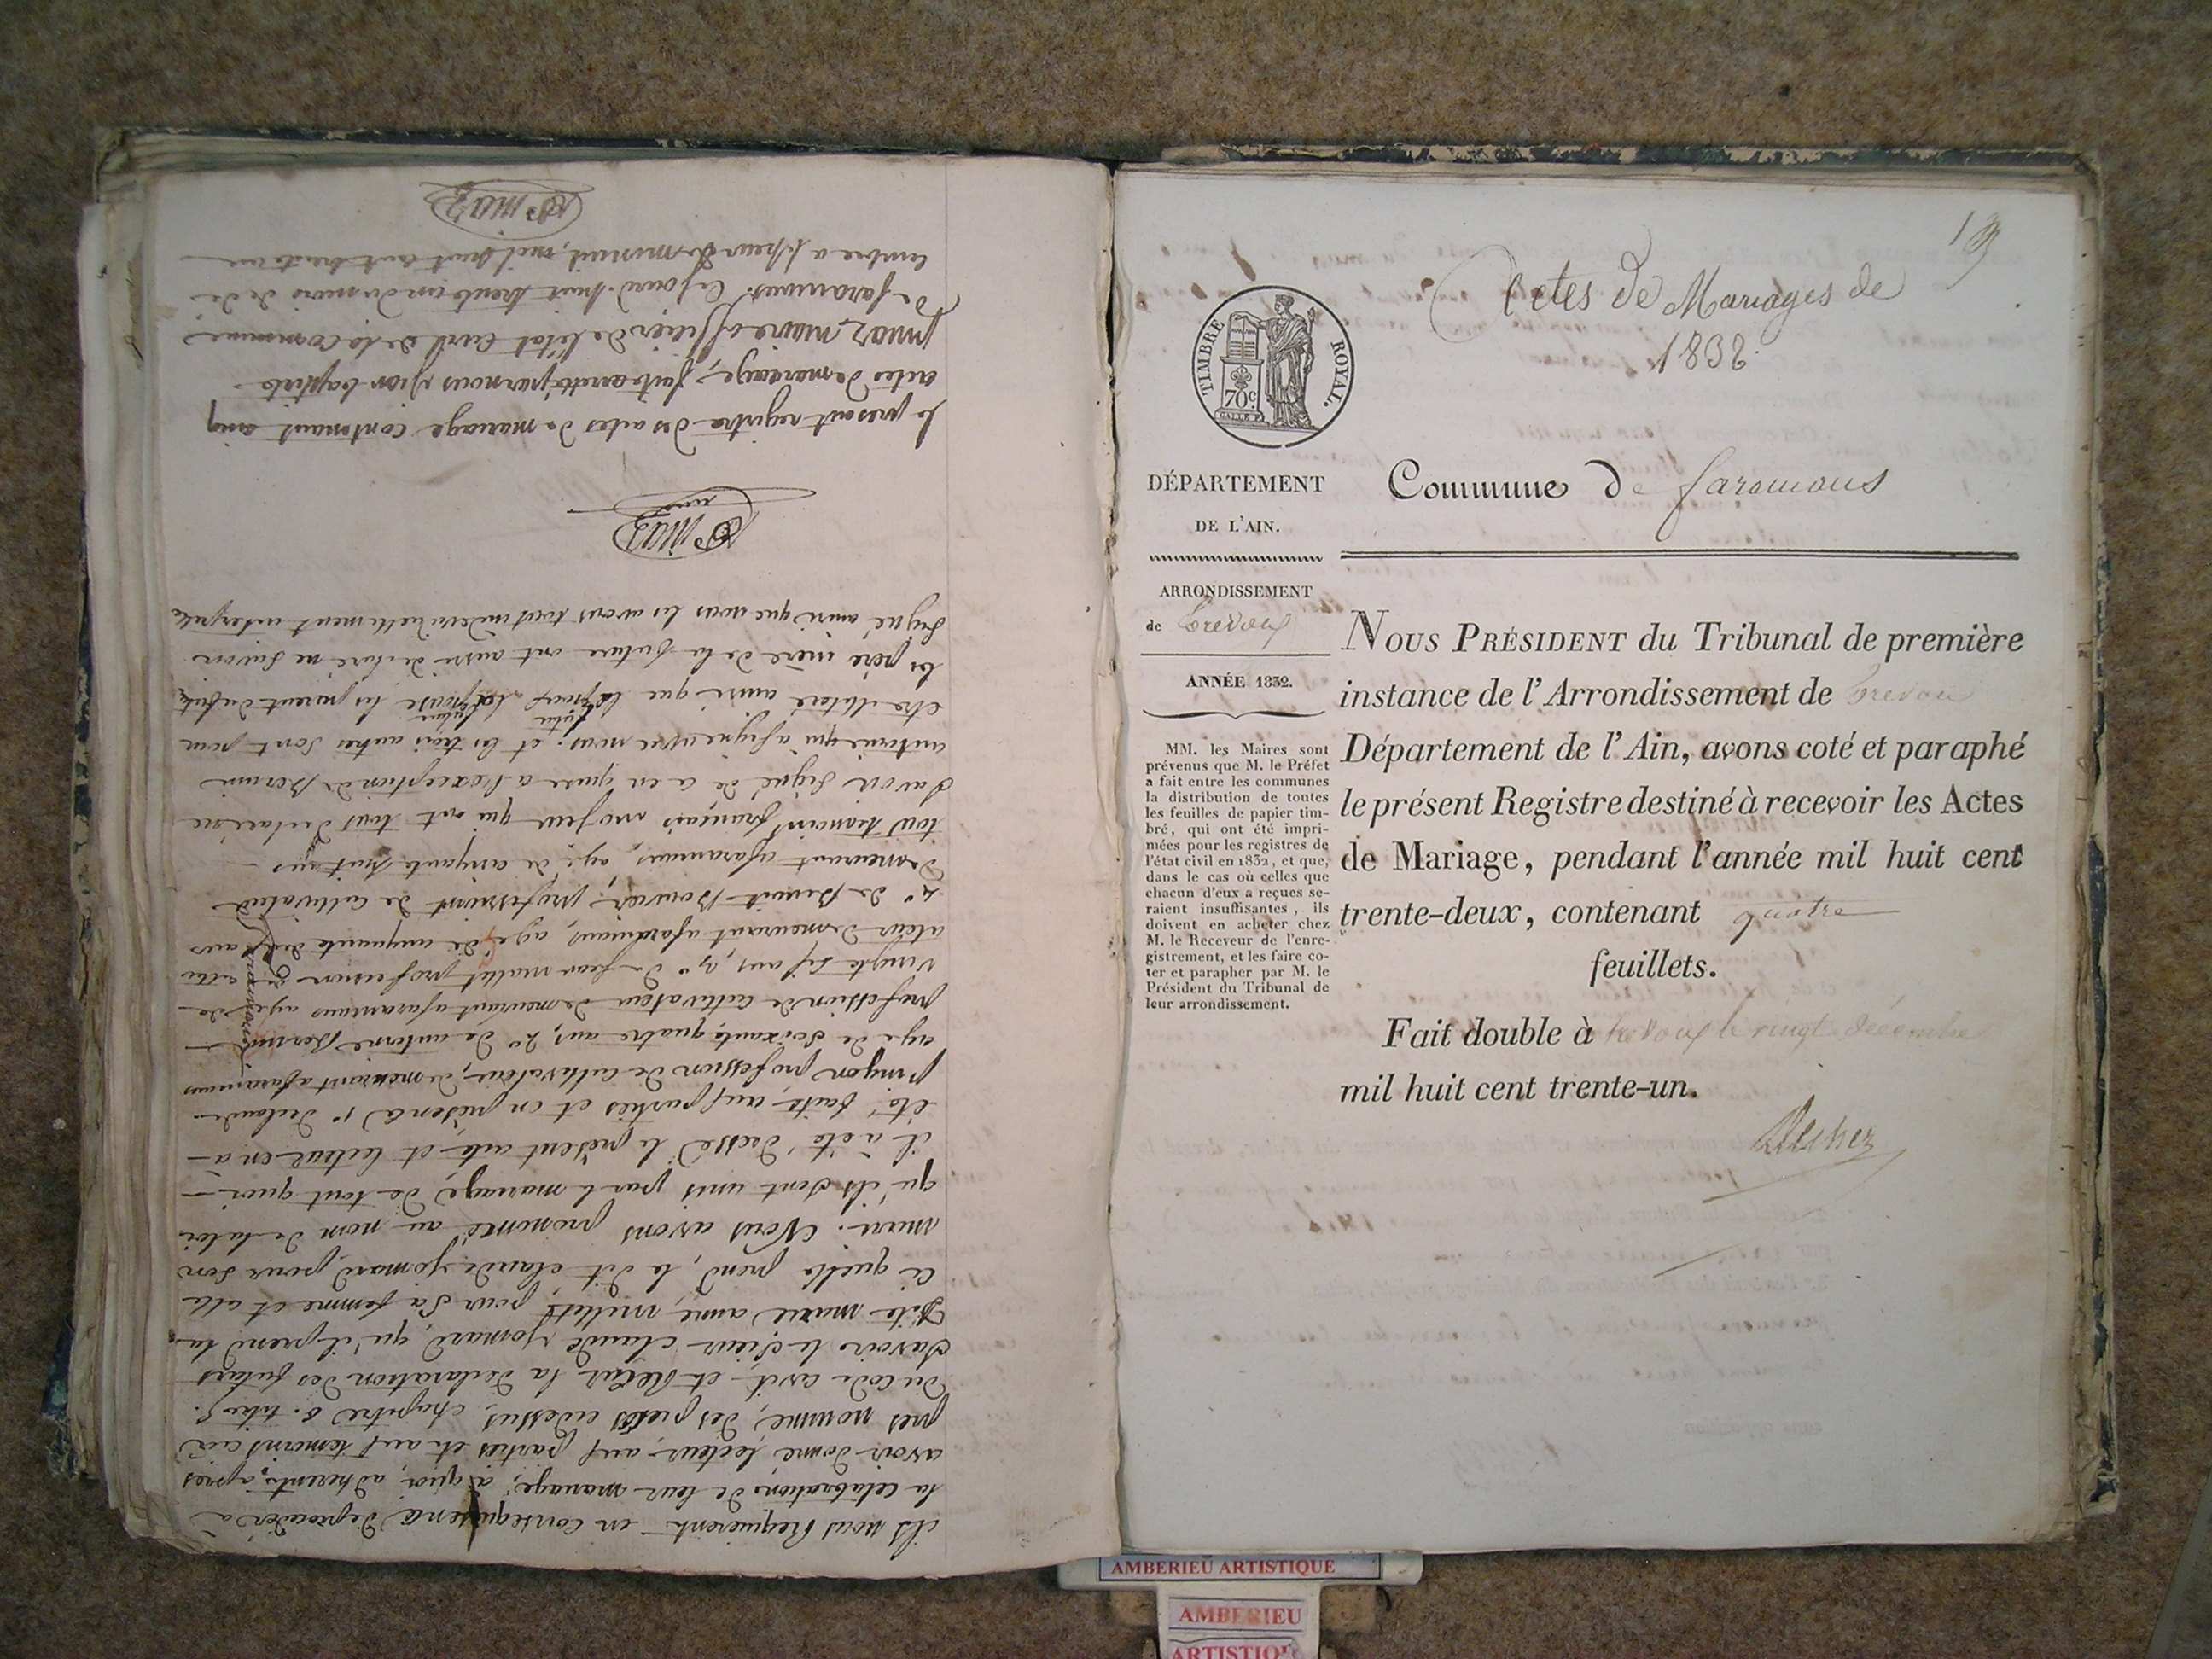 ils nous Requierent en consequence de proceder à
la celebration de leur mariage, à quoi, adherents, après
avoir donné lecteur, aux parties et aux temoins cia
pres nommé, des pieces cidessus, chapitre 6. titre 5.
du code civil et Reçut la declaration des futurs
savoir le sieur claude yomard, qu'il prend la
dite marie anne, mullet, pour sa femme et elle
a quelle prend, le dit claude yomard pour son
mari. Nous avons prononcé au nom de la loi
qu'ils sont unis par le mariage, de tout quoi
il a été dressé le présent acte, et lecteur en a
été faite aux parties et en présence 1º de claude
profession de cultivateur, demeurant a faramans
age de soixante quatre ans, 2º de antoine Bernin
profession de cultivateur demeurant a faramans agé de
vingte six ans, 3º de jean mallet profession de culti
ateur demeurant a faramans, agé de cinquante ans
4º de Benoit Bouvier, profession de cultivateur
demeurant a faramans, agé de cinquante huit ans
tous temoins français majeur qui ont tous declaré ne
savoir signé de ce enquis a l'exception de Bernin
antoine qui a signé avec nous. et les trois autres sont pour
etre illiteré ainsi que l'époux futur la future épouse
les père mère de la future ont aussi declaré ne savoir
signé ainsi que nous les avons tous individuellement interpelé
le present registre des actes de mariage contenant cinq
actes de mariage, fait arretté par nous jean baptiste
maire officier de l'etat civil de la commune
de faramans. cejourd-huit trente un du mois de de
cembre a l'heur de minuit, mil huit cent trente un
19
Actes de Mariages de
1832.
TIMBRE ROYAL.
70c
DÉPARTEMENT
DE L'AIN.
Commune de faramans
ARRONDISSEMENT
de Trevoux
ANNÉE 1832.
MM. les Maires sont
prévenus que M. le Préfet
a fait entre les communes
la distribution de toutes
les feuilles de papier tim-
bré, qui ont été impri-
mées pour les registres de
l'état civil en 1832, et que,
dans le cas où celles que
chacun d'eux a reçues se-
raient insuffisantes, ils
doivent en acheter chez
M. le Receveur de l'enre-
gistrement, et les faire co-
ter et parapher par M. le
Président du Tribunal de
leur arrondissement.
NOUS PRÉSIDENT du Tribunal de première
instance de l'Arrondissement de Trevoux
Département de l'Ain, avons coté et paraphé
le présent Registre destiné à recevoir les Actes
de Mariage, pendant l'année mil huit cent
trente-deux, contenant quatre
feuillets.
Fait double à trevoux le vingt décembre
mil huit cent trente-un.
AMBERIEU ARTISTIQUE
AMBERIEU
ARTISTIQUE